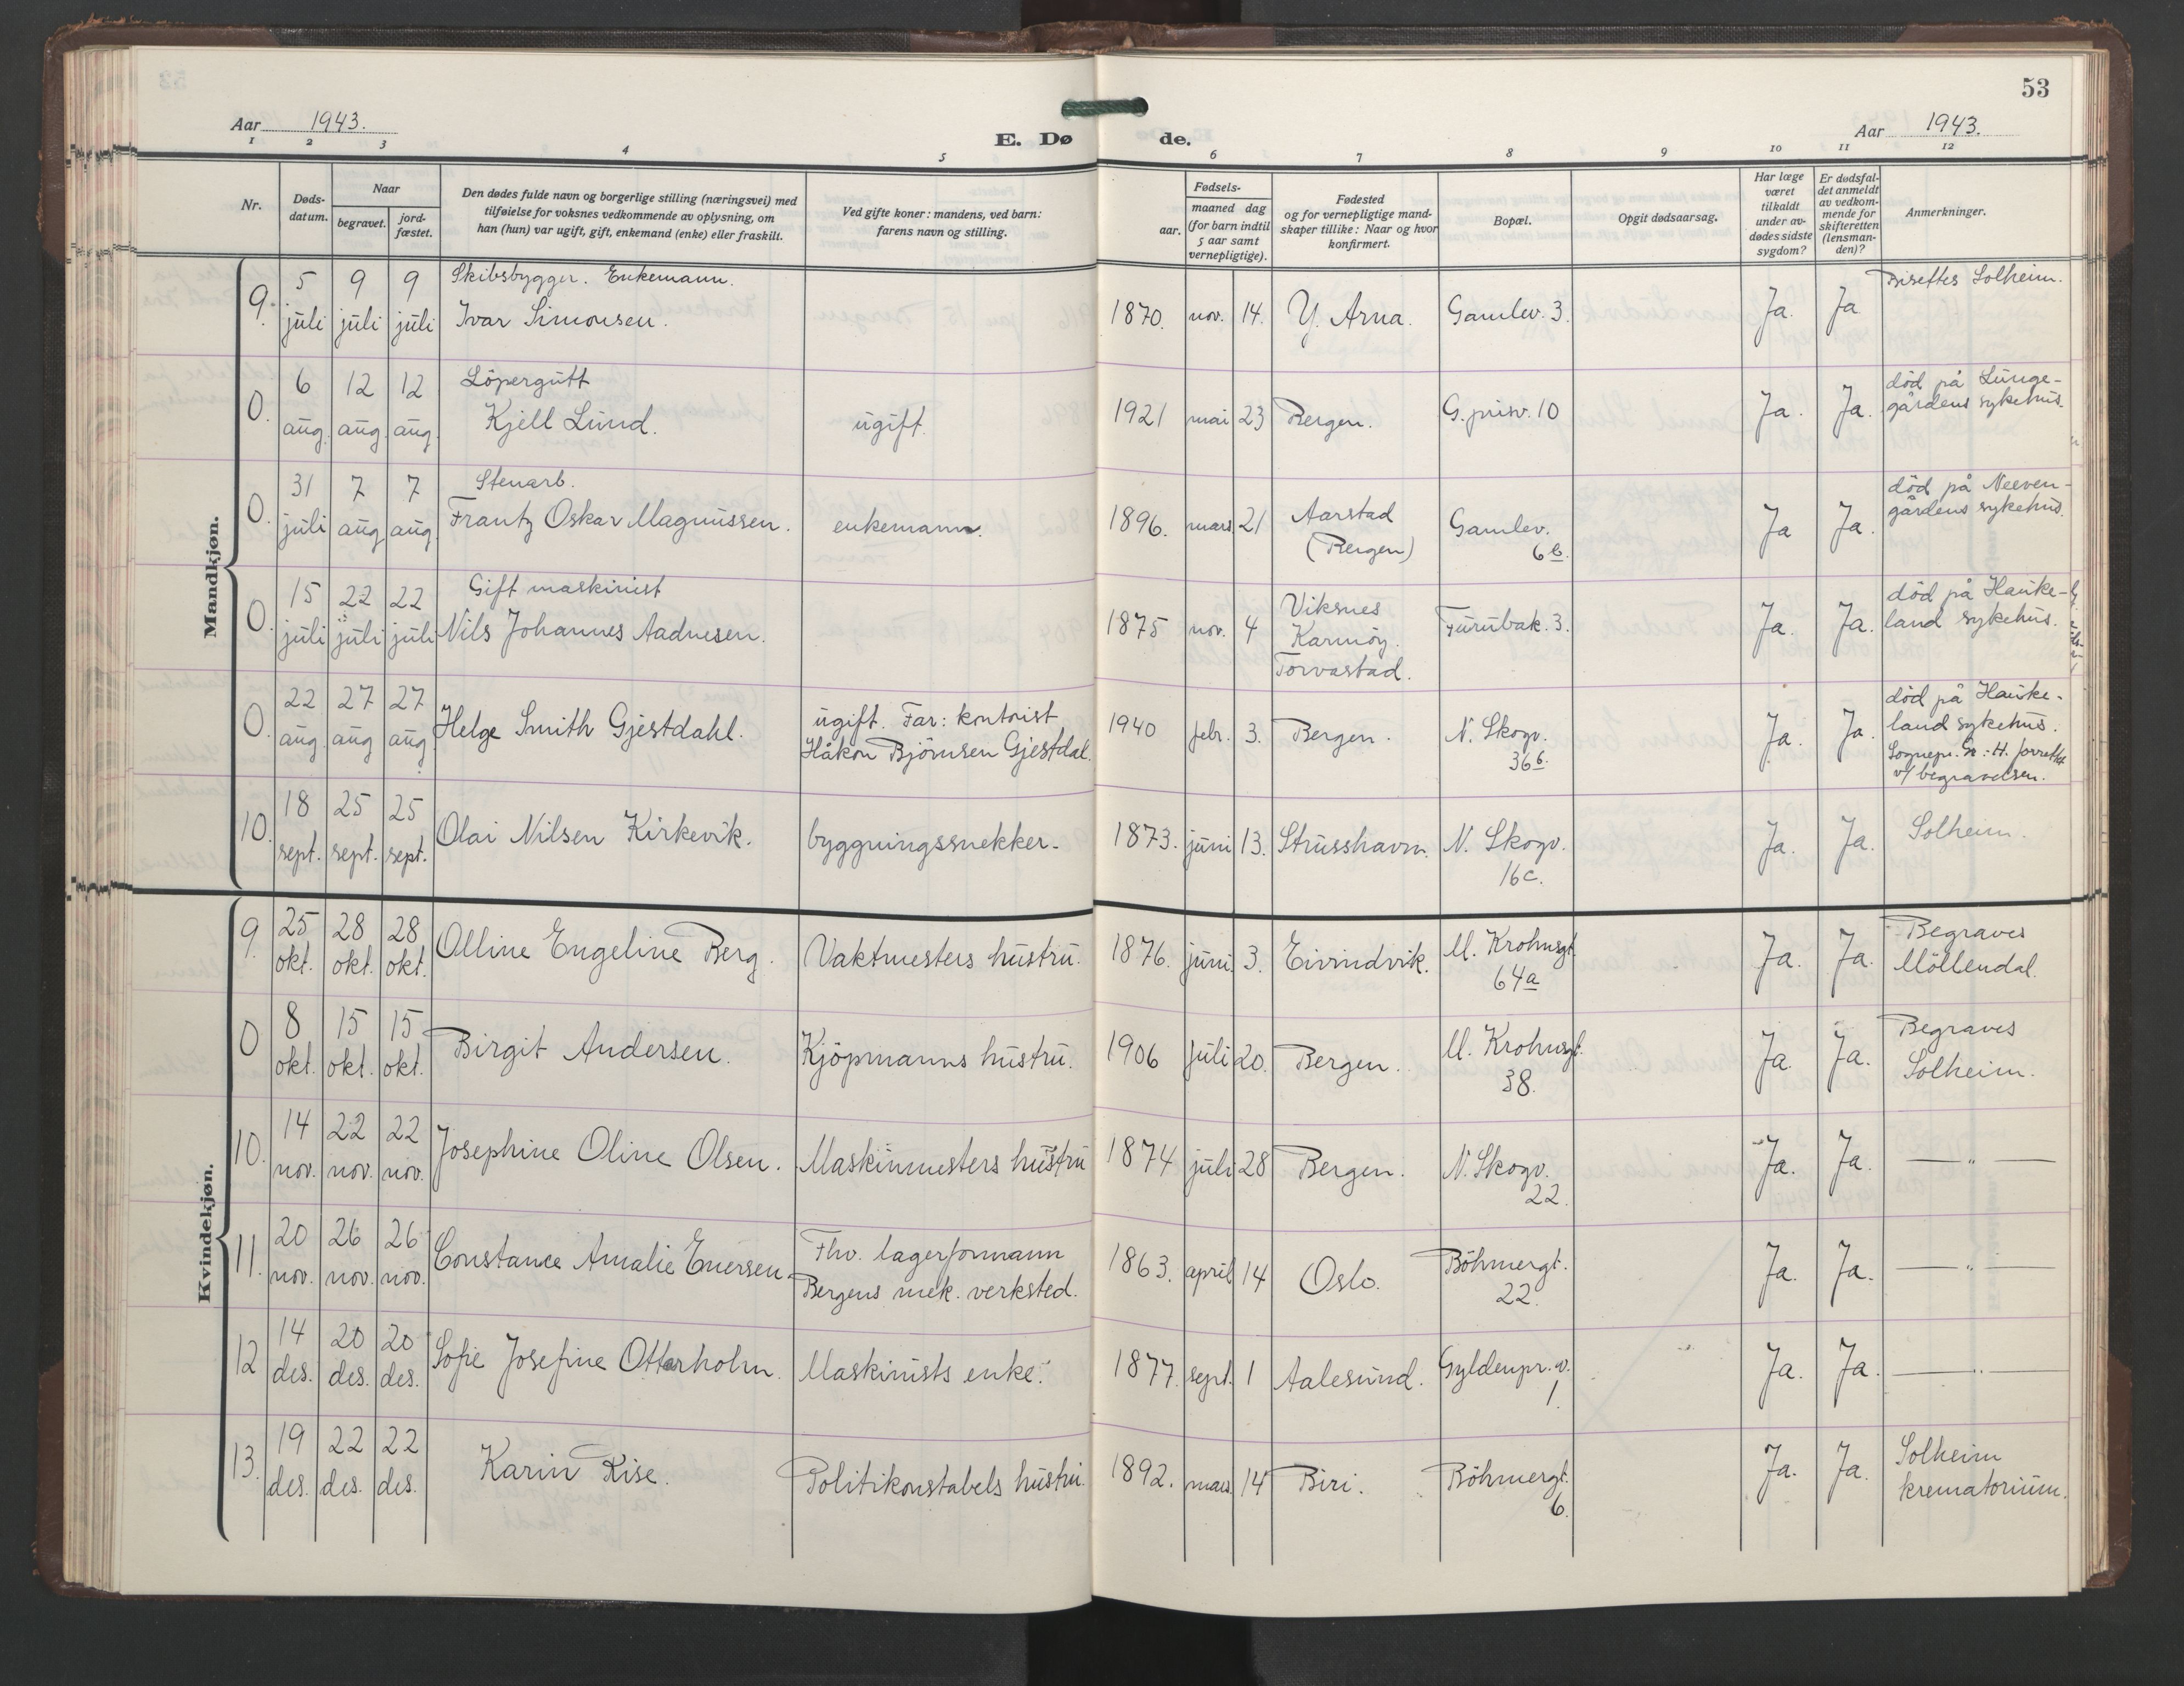 53
Aar 1943.
E. Døde.
Aar 1943.
1 2 3 4 5 6 7 8 9 10 11 12
Nr.
Døds-
datum.
Naar
begravet.
jord-
fæstet.
Den dødes fulde navn og borgerlige stilling (næringsvei) med
tilføielse for voksnes vedkommende av oplysning, om
han (hun) var ugift, gift, enkemand (enke) eller fraskilt.
Ved gifte koner: mandens, ved barn:
farens navn og stilling.
Fødsels-
aar.
maaned dag
(for barn indtil
5 aar samt
vernepligtige).
Fødested
og for vernepligtige mand-
skaper tillike: Naar og hvor
konfirmert.
Bopæl.
Opgit dødsaarsag.
Har læge
været
tilkaldt
under av-
dødes sidste
sygdom?
Er dødsfal-
det anmeldt
av vedkom-
mende for
skifteretten
(lensman-
den)?
Anmerkninger.
Mandkjøn.
9. 5 juli 9 juli 9 juli
Skibsbygger. Enkemann.
Ivar Simonsen.
1870. nov. 14. Y. Arna. Gamlev. 3. Ja. Ja
Bisettes Solheim.
0. 6 aug. 12 aug. 12 aug.
Löpergutt
Kjell Lund.
ugift.
1921 mai 23 Bergen. G. prisv. 10 Ja. Ja.
död på Lunge-
gårdens sykehus.
0. 31 juli 7 aug 7 aug.
Stenarb.
Frantz Oskar Magnussen.
enkemann.
1896. mars 21 Aarstad
(Bergen)
Gamlev.
6b.
Ja Ja.
död på Neeven-
gårdens sykehus.
0. 15 juli 22 juli 22 juli
Gift maskinist
Nils Johannes Aadnesen.
1875 nov. 4 Viksnes
Karmöy.
Torvastad.
Furubak. 3. Ja. Ja.
död på Hauke-
land sykehus.
0. 22 aug. 27 aug 27 aug.
Helge Smith Gjestdahl.
ugift. Far: kontorist
Håkon Björnsen Gjestdal.
1940 febr. 3. Bergen. N. Skogv.
36b.
Ja. Ja.
död på Hauke-
land sykehus.
v/ begravelsen.
10. 18 sept. 25 sept. 25 sept.
Olai Nilsen Kirkevik.
byggningssnekker.
1873. juni 13. Strusshavn. N. Skogv.
16c.
Ja. Ja.
Solheim.
Kvindekjøn.
9. 25 okt. 28 okt. 28 okt.
Olline Engeline Berg.
Vaktmesters hustru.
1876. juni 3. Eivindvik. M. Krohnsgt.
64a
Ja. Ja.
Begraves
Möllendal.
0 8 okt. 15 okt. 15 okt.
Birgit Andersen.
Kjöpmanns hustru.
1906 juli 20. Bergen. M. Krohnsgt.
38.
Ja. Ja.
Begraves
Solheim.
10. 14 nov. 22 nov. 22 nov.
Josephine Oline Olsen.
Maskinmesters hustru
1874 juli 28 Bergen. N. Skogv.
22.
Ja. Ja.
— " —
11. 20 nov. 26 nov. 26 nov.
Constance Amalie Enersen.
Fhv. lagerformann
Bergens mek. verksted.
1863. april 14 Oslo. Böhmergt.
22.
Ja. Ja.
— " —
12 14 des. 20 des. 20 des.
Sofie Josefine Otterholm.
Maskinists enke.
1877. sept. 1 Aalesund. Gyldenpr. v.
1.
Ja. Ja.
— " —
13. 19 des. 22 des. 22 des.
Karin Kise.
Politikonstabels hustru.
1892. mars 14 Biri. Böhmergt.
6.
Ja. Ja.
Solheim
krematorium.